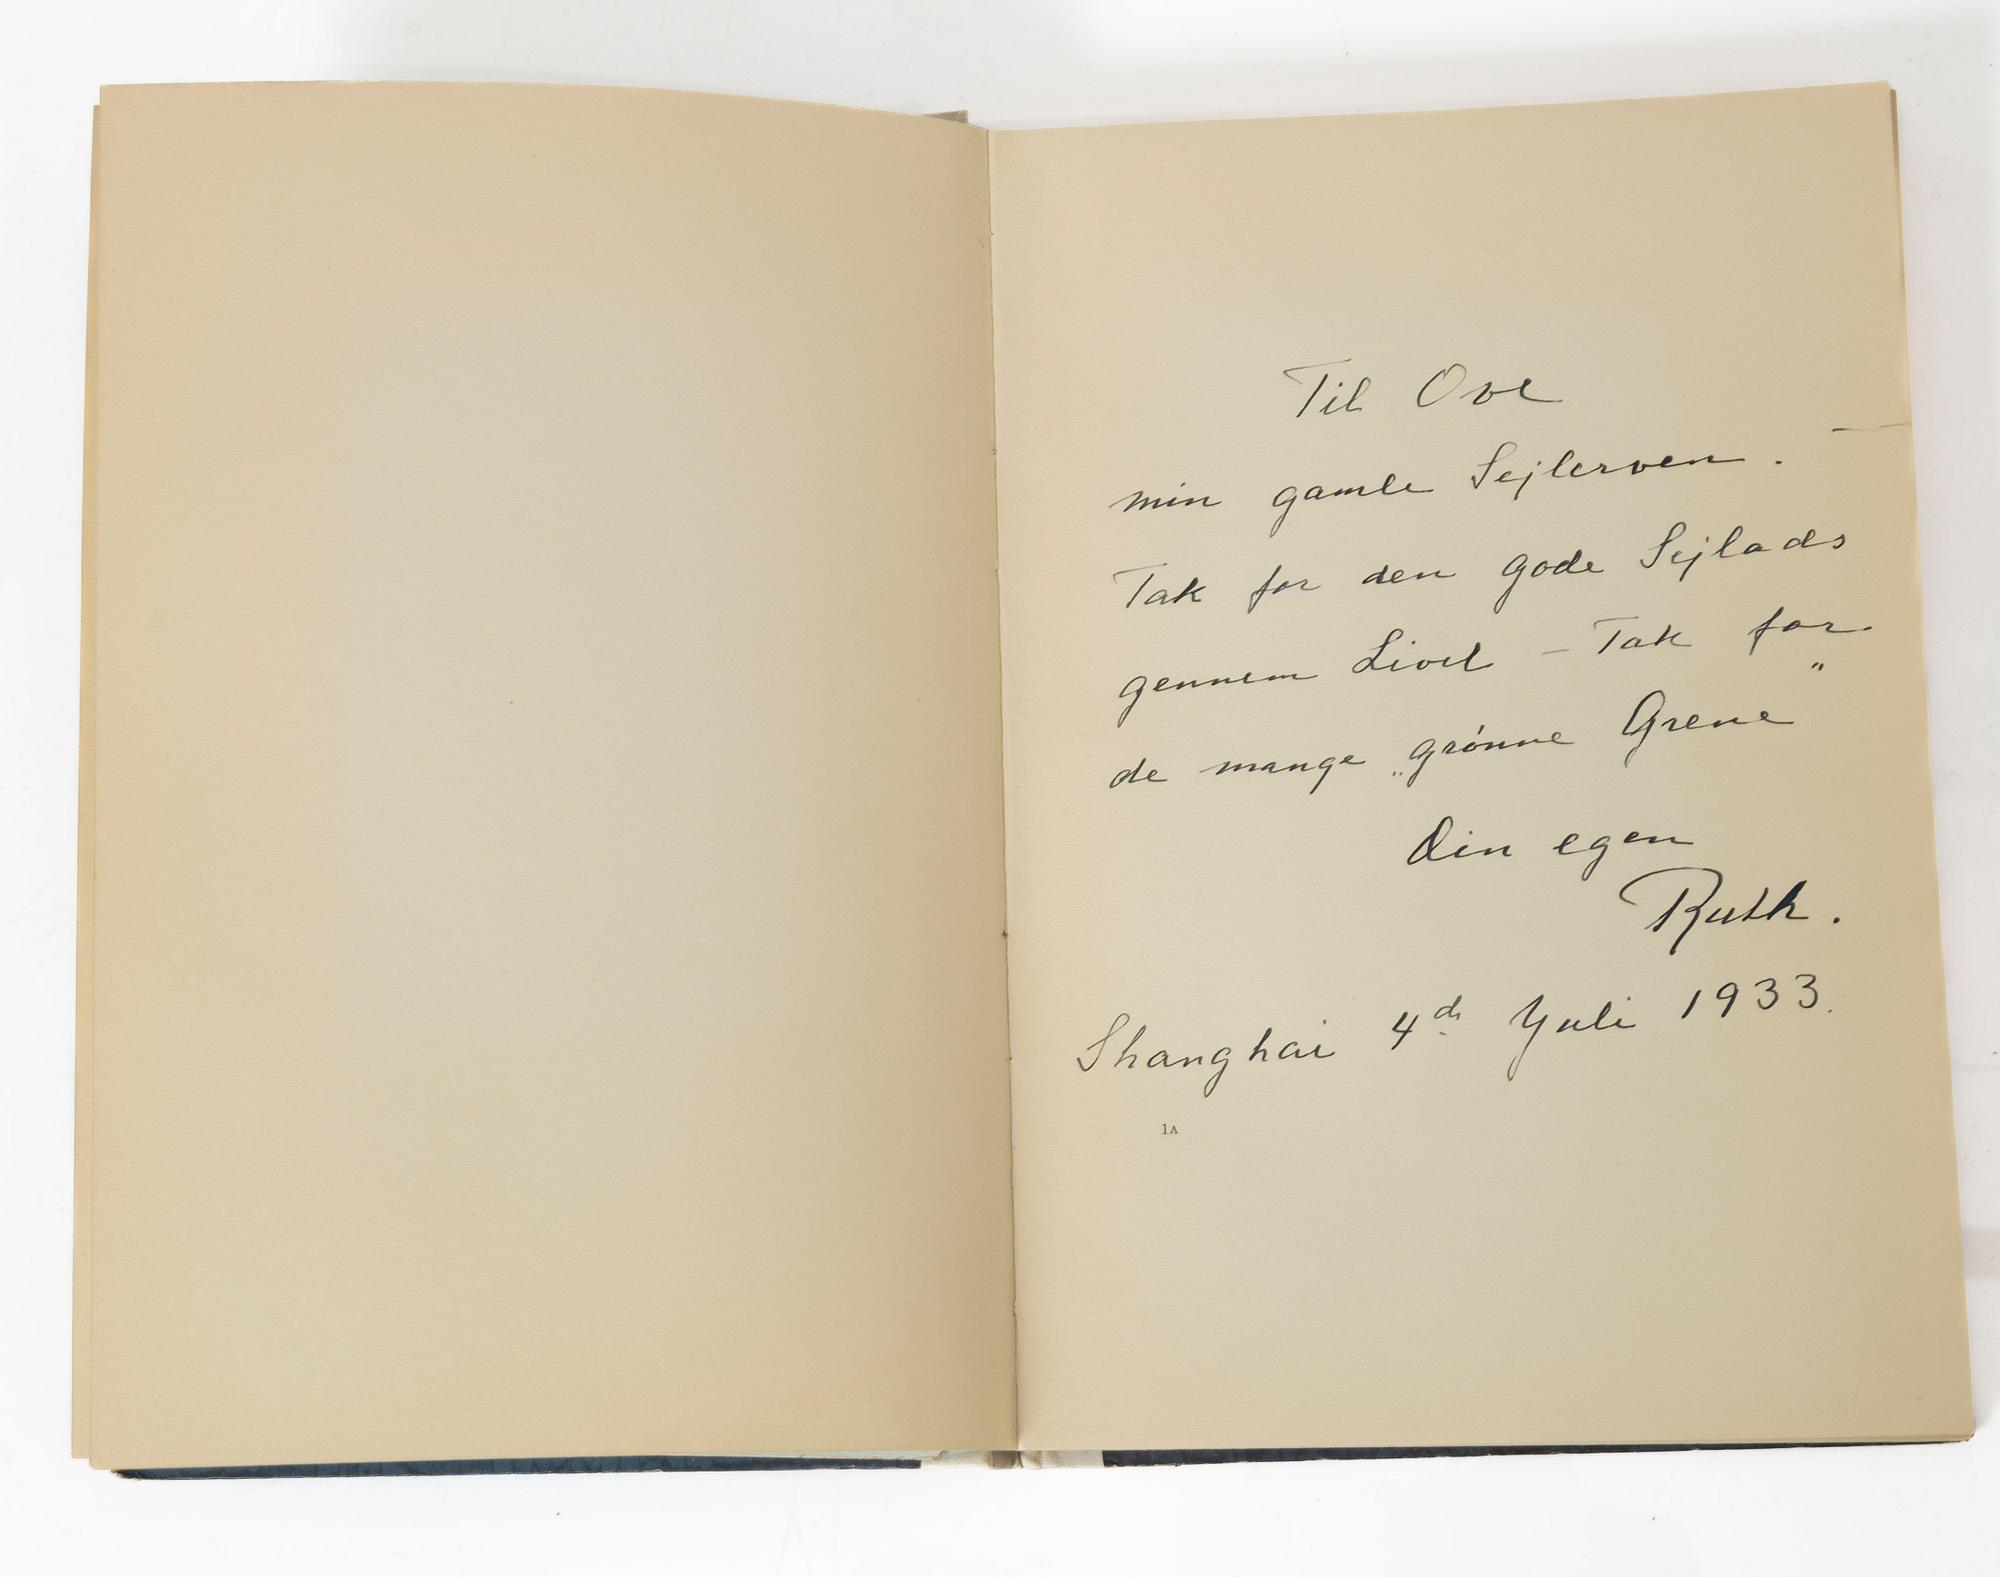 Til Ove
min gamle Sejlerven. —
Tak for den gode Sejlads
gennem Livet – Tak for
de mange „grønne Grene"
Din egen
Ruth.
Shanghai 4de Juli 1933.
1A